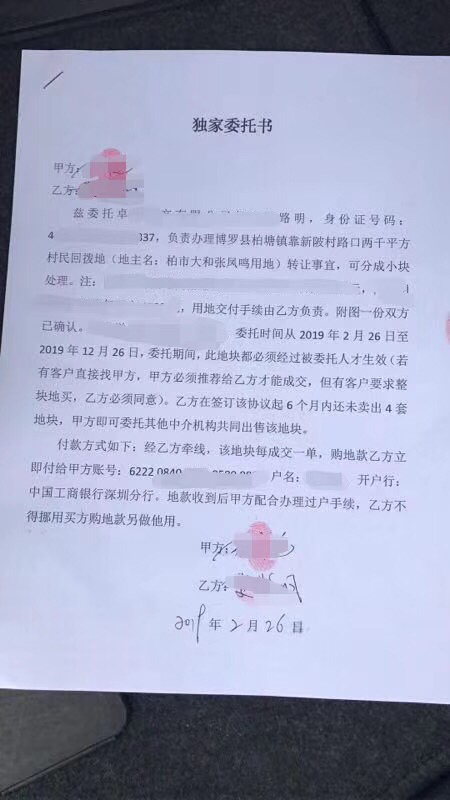 独家委托书
甲方:
乙方:
兹委托卓 路明，身份证号码：
4 037，负责办理博罗县柏塘镇靠新陂村路口两千平方
村民回拨地（地主名：柏市大和张凤鸣用地）转让事宜，可分成小块
处理。注：
，用地交付手续由乙方负责。附图一份双方
已确认。 委托时间从2019年2月26日至
2019年12月26日，委托期间，此地块都必须经过被委托人才生效（若
有客户直接找甲方，甲方必须推荐给乙方才能成交，但有客户要求整
块地买，乙方必须同意）。乙方在签订该协议起6个月内还未卖出4套
地块，甲方即可委托其他中介机构共同出售该地块。
付款方式如下：经乙方牵线，该地块每成交一单，购地款乙方立
即付给甲方账号：6222 0840 户名： 开户行：
中国工商银行深圳分行。地款收到后甲方配合办理过户手续，乙方不
得挪用买方购地款另做他用。
甲方:
乙方:
2019年2月26日